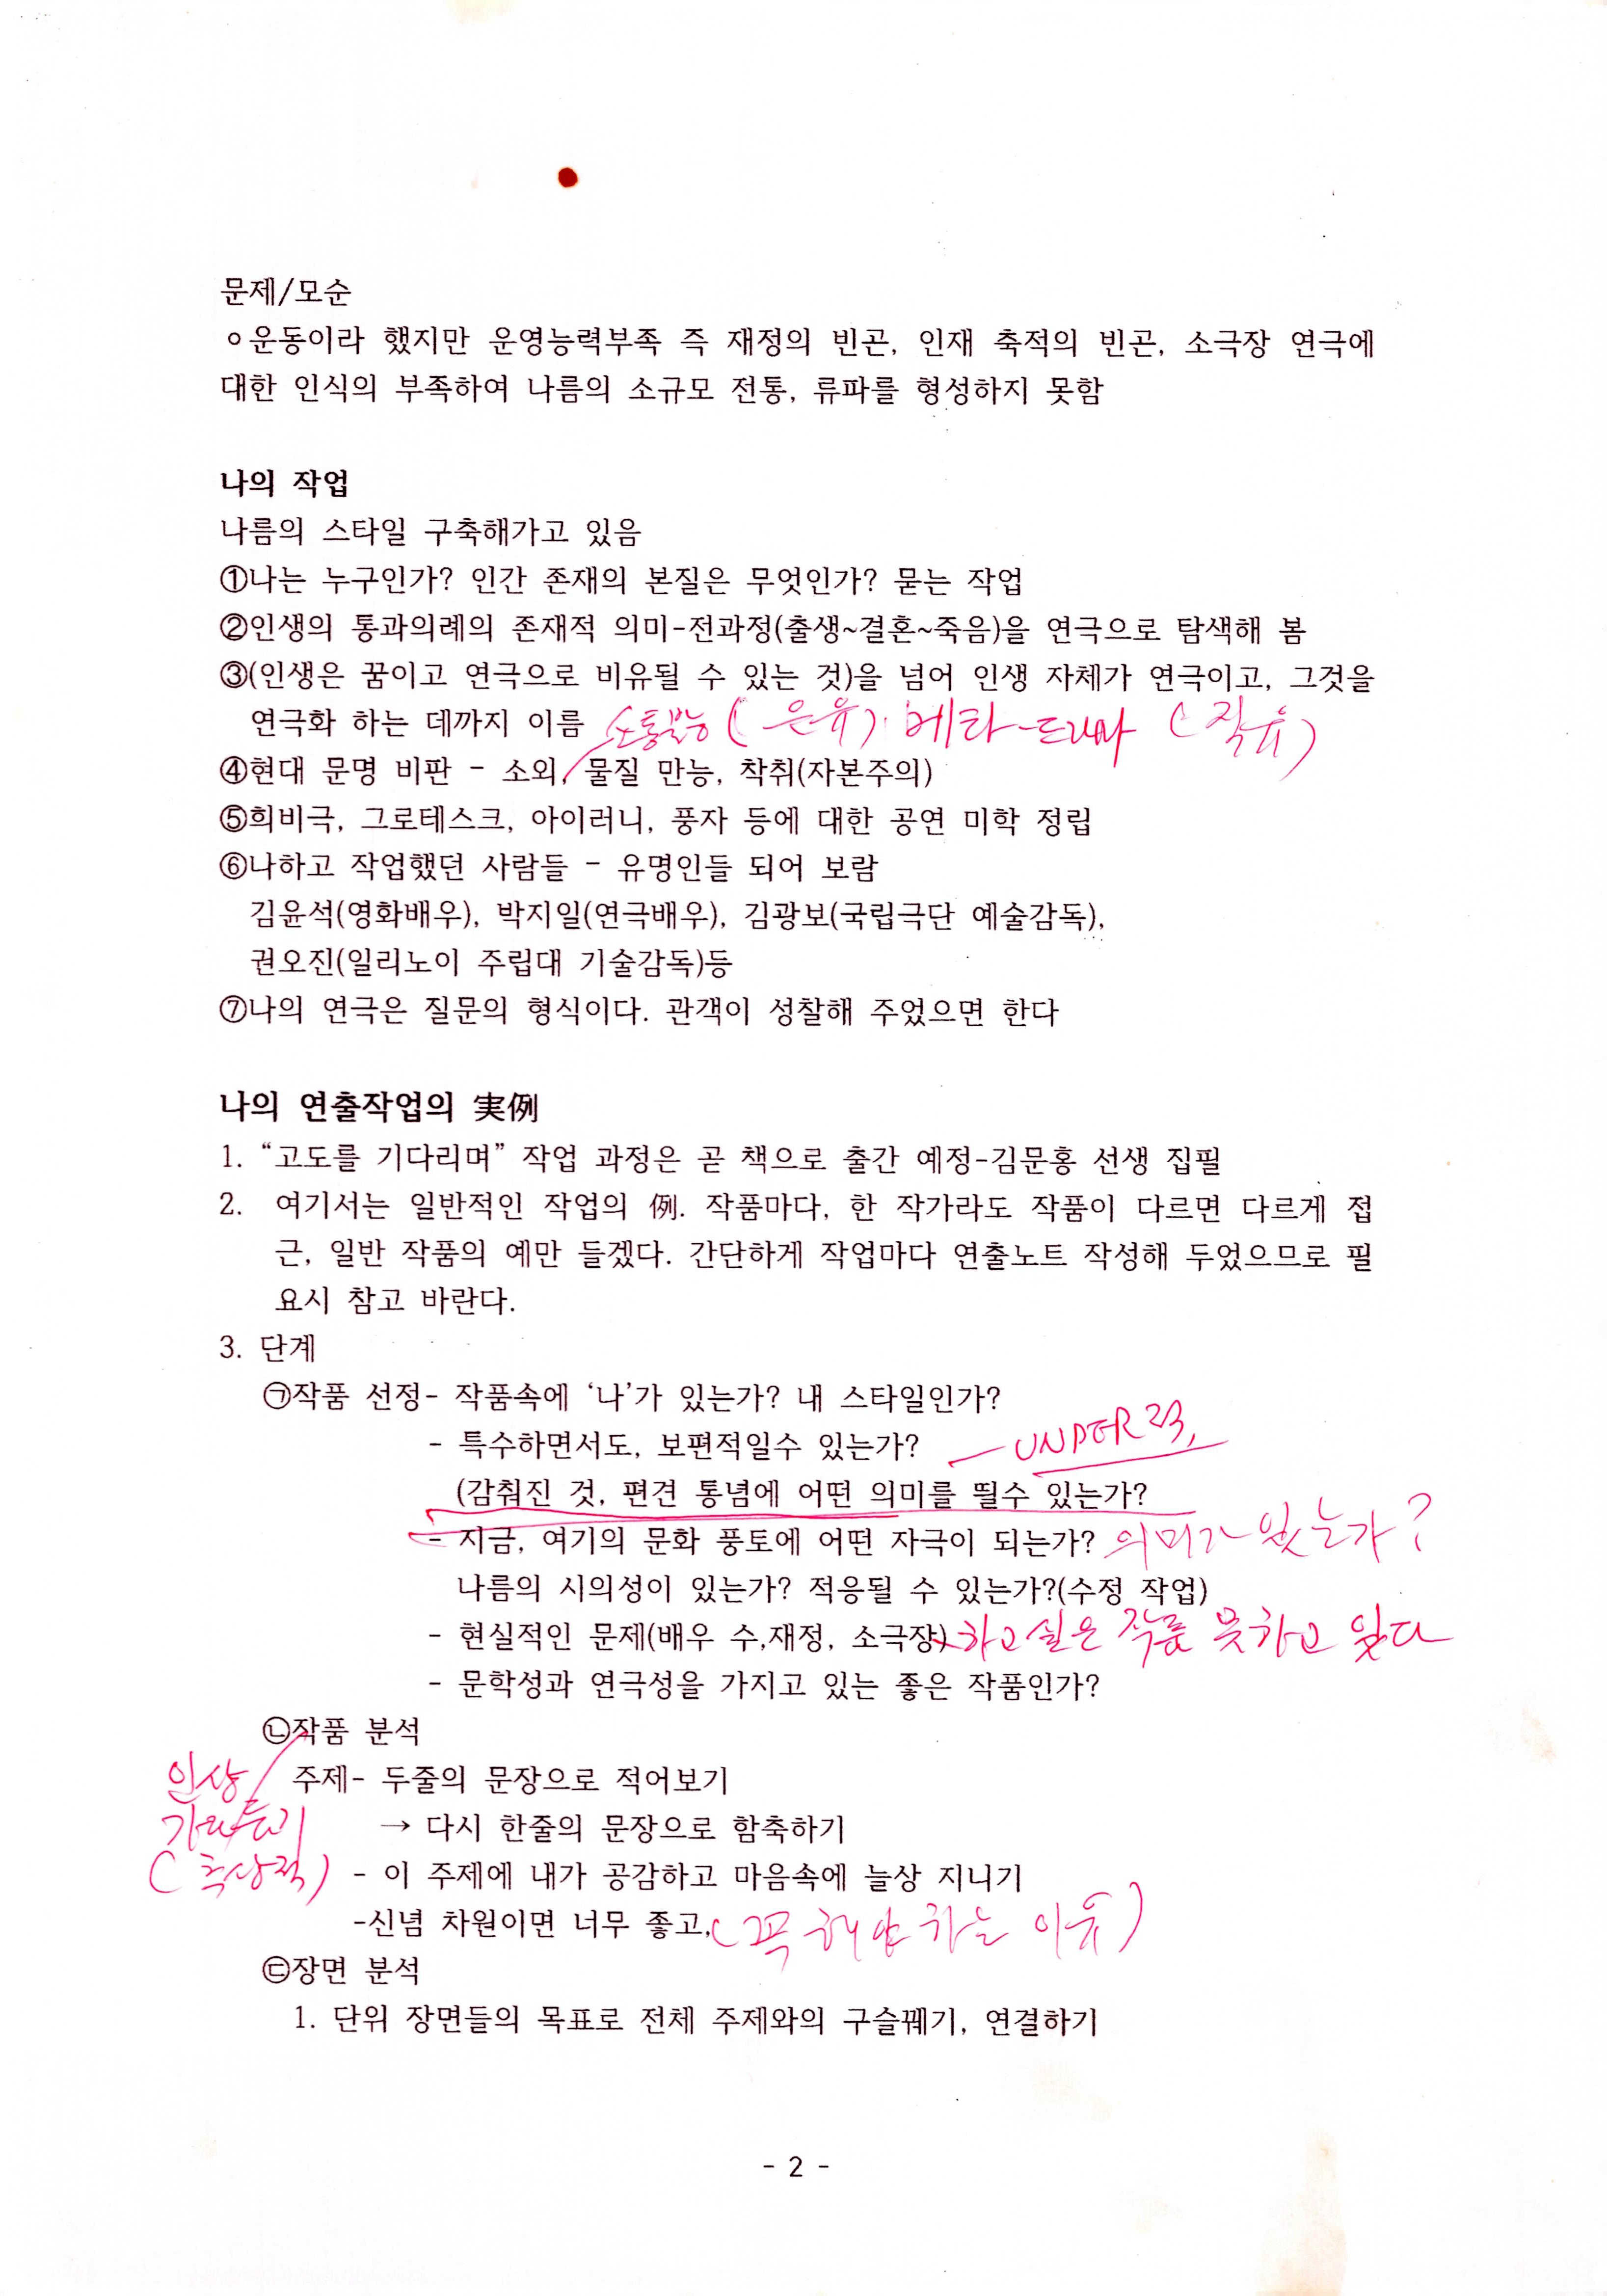 문제/모순
ㅇ운동이라 했지만 운영능력부족 즉 재정의 빈곤, 인재 축적의 빈곤, 소극장 연극에
대한 인식의 부족하여 나름의 소규모 전통, 류파를 형성하지 못함
나의 작업
나름의 스타일 구축해가고 있음
①나는 누구인가? 인간 존재의 본질은 무엇인가? 묻는 작업
②인생의 통과의례의 존재적 의미-전과정(출생~결혼~죽음)을 연극으로 탐색해 봄
③(인생은 꿈이고 연극으로 비유될 수 있는 것)을 넘어 인생 자체가 연극이고, 그것을
연극화 하는 데까지 이름 소통불능 (은유) 메타-드라마 (직유)
④현대 문명 비판 - 소외, 물질 만능, 착취(자본주의)
⑤희비극, 그로테스크, 아이러니, 풍자 등에 대한 공연 미학 정립
⑥나하고 작업했던 사람들 - 유명인들 되어 보람
김윤석(영화배우), 박지일(연극배우), 김광보(국립극단 예술감독),
권오진(일리노이 주립대 기술감독)등
⑦나의 연극은 질문의 형식이다. 관객이 성찰해 주었으면 한다
나의 연출작업의 実例
1. “고도를 기다리며” 작업 과정은 곧 책으로 출간 예정-김문홍 선생 집필
2. 여기서는 일반적인 작업의 例. 작품마다, 한 작가라도 작품이 다르면 다르게 접
근, 일반 작품의 예만 들겠다. 간단하게 작업마다 연출노트 작성해 두었으므로 필
요시 참고 바란다.
3. 단계
㉠작품 선정- 작품속에 ‘나’가 있는가? 내 스타일인가?
- 특수하면서도, 보편적일수 있는가? — UNDER
(감춰진 것, 편견 통념에 어떤 의미를 띌수 있는가?
- 지금, 여기의 문화 풍토에 어떤 자극이 되는가? 의미가 있는가?
나름의 시의성이 있는가? 적응될 수 있는가?(수정 작업)
- 현실적인 문제(배우 수,재정, 소극장) 하고 싶은 작품 못하고 있다
- 문학성과 연극성을 가지고 있는 좋은 작품인가?
㉡작품 분석
인상 주제- 두줄의 문장으로 적어보기
→ 다시 한줄의 문장으로 함축하기
(추상적) - 이 주제에 내가 공감하고 마음속에 늘상 지니기
-신념 차원이면 너무 좋고, (꼭 해야 하는 이유)
㉢장면 분석
1. 단위 장면들의 목표로 전체 주제와의 구슬꿰기, 연결하기
- 2 -